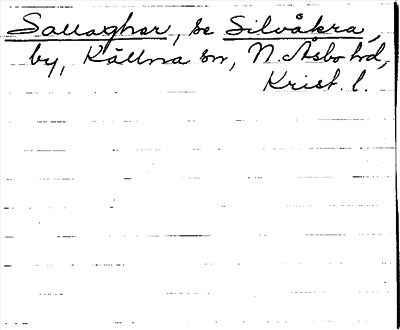 Sallaghar, se Silvåkra,
by, Källna sn, N. Åsbo hd,
Krist. l.